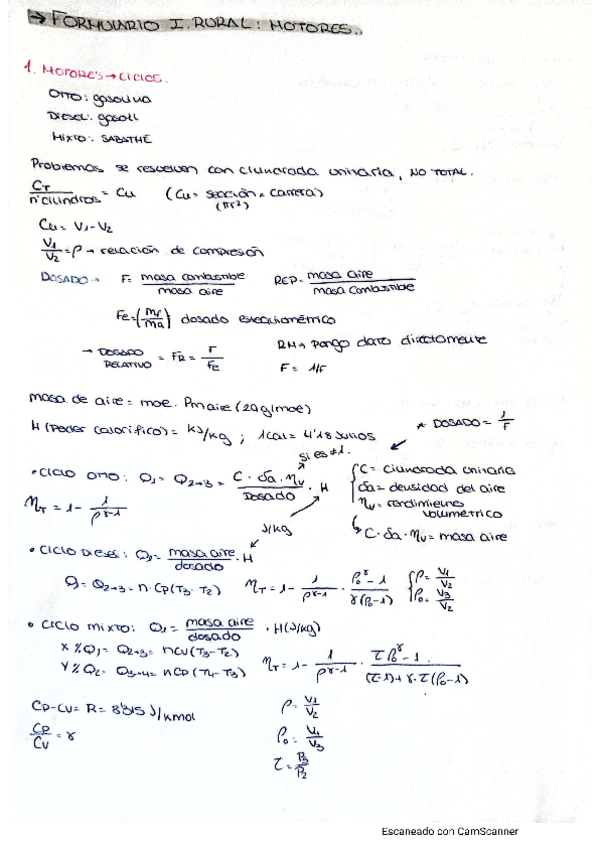 → FORMULARIO I. RURAL: MOTORES.
1. MOTORES → CICLOS.
OTTO: gasolina
DIESEL: gasoil
MIXTO: SABATHÉ
Problemas se resuelven con cilindrada unitaria, NO TOTAL.
CT / nº cilindros = Cu (Cu = sección × carrera)
(πr²)
Cu = V1 - V2
V1/V2 = ρ → relación de compresión
DOSADO → F = masa combustible / masa aire REP = masa aire / masa combustible
Fe = (mf/ma) dosado estequiométrico
→ DOSADO RELATIVO = FR = F/Fe RH → pongo dato directamente
F = 1/F
masa de aire = moe. Pm aire (29g/moe)
H (Poder calorífico) = kJ/kg ; 1cal = 4'18 Julios * DOSADO = 1/F
si es ≠ 1.
• CICLO OTTO: Q1 = Q2→3 = C · δa · ηv / DOSADO · H { C = cilindrada unitaria
δa = densidad del aire
ηT = 1 - 1/ρ^γ-1 ηv = rendimiento volumétrico
J/kg ↳ C · δa · ηv = masa aire
• CICLO DIESEL: Q1 = masa aire / dosado · H
Q1 = Q2→3 = n · CP (T3 - T2) ηT = 1 - 1/ρ^γ-1 · ρo^γ - 1 / γ(ρo - 1) { ρ = V1/V2
ρo = V3/V2
• CICLO MIXTO: Q1 = masa aire / dosado · H (J/kg)
X % Q1 = Q2→3 = nCV (T3 - T2)
Y % Q2 = Q3→4 = nCP (T4 - T3) ηT = 1 - 1/ρ^γ-1 · τρo^γ - 1 / (τ-1) + γ · τ(ρo - 1)
CP - CV = R = 8'315 J/kmol ρ = V1/V2
CP/CV = γ ρo = V4/V3
τ = P3/P2
Escaneado con CamScanner